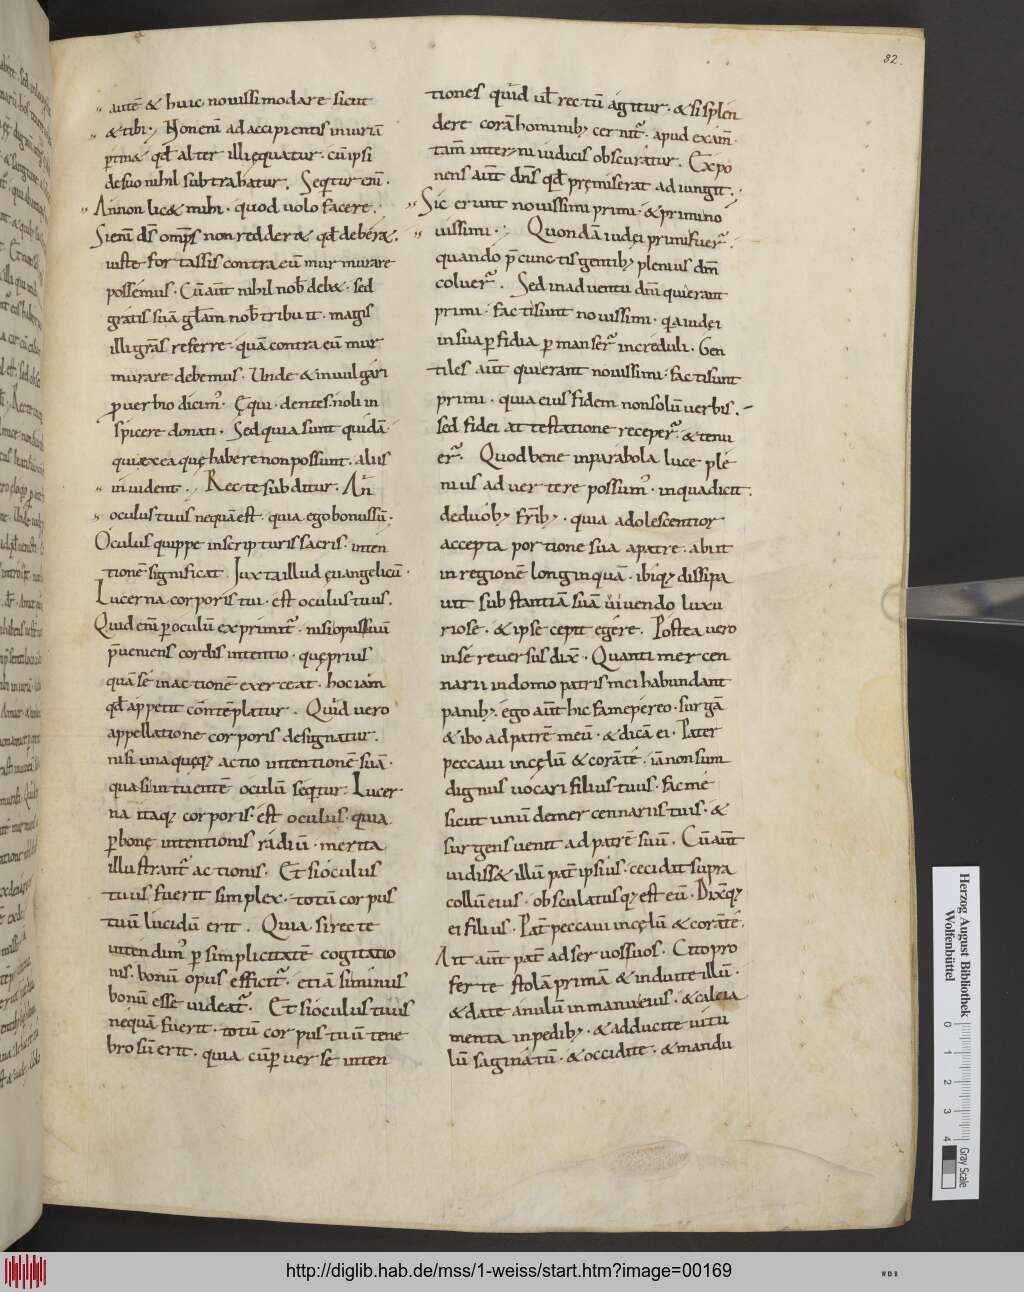 82.
autē & huic nouissimo dare sicut
& tibi. Non enī ad accipientis iniuriā
ꝑtin& qđ alter illi ęquatur. cū ipsi
de suo nihil subtrahatur. Seqitur enī.
An non lic& mihi. quod uolo facere.
Si enī dſ omps non redder& qđ deber&.
iuste fortassis contra eū murmurare
possemus. Cū aut̄ nihil nob̄ deb&. sed
gratis suā głam nob̄ tribuit. magis
illi grās referre. quā contra eū mur
murare debemus. Unde & in uulgari
ꝓuerbio dicim᾿. Ęqui. dentes. noli in
spicere donati. Sed quia sunt quidā
qui ex ea quę habere non possunt. aliis
inuident. Recte subditur. An
oculus tuus nequā est. quia ego bonus sū.
Oculus quippe in scripturis sacris. inten
tionē significat. Juxta illud ęuangelicū.
Lucerna corporis tui. est oculus tuus.
Quid enī ꝑ oculū exprimit᾿. nisi opus suū
p̄ueniens cordis intentio. quę prius
quā sé in actionē exerceat. hoc iam
qđ appetit contēplatur. Quid uero
appellatione corporis designatur.
nisi una quęqꝫ actio intentionē suā.
quasi intuentē oculū seqitur. Lucer
na itaqꝫ corporis. ést oculus. quia
ꝑ bonę intentionis radiū. merita
illustrant᾿ actionis. Et si oculus
tuus fuerit simplex. totū corpus
tuū lucidū erit. Quia si recte
intendim᾿ ꝑ simplicitatē cogitatio
nis. bonū opus efficit᾿. etiā si minus
bonū esse uideat᾿. Et si oculus tuus
nequā fuerit. totū corpus tuū tene
brosū erit. quia cū ꝑuersé inten
tiones quid uł rectū agitur. & si splen
dere corā hominibꝫ cernit᾿. apud exam.
tam̄ interni iudicis obscuratur. Expo
nens aut̄ dn̄s qđ pręmiserat adiungit.
Sic erunt nouissimi primi. & primi no
uissimi. Quondā iudei primi fuer᾿.
quando p̄ cunctis gentibꝫ plenius dn̄m
coluer᾿. Sed in aduentu dn̄i qui erant
primi. facti sunt nouissimi. q̄a iudei
in sua ꝑfidia ꝑmanser᾿ increduli. Gen
tiles aut̄ qui erant nouissimi. facti sunt
primi. quia eius fidem non solū uerbis.
sed fidei attestatione receper᾿. & tenu
er᾿. Quod bene in parabola luce plé
nius aduertere possum᾿. in qua dicit.
de duobꝫ frībꝫ. quia adolescentior
accepta portione sua a patre. abiit
in regionē longinquā. ibiqꝫ dissipa
uit substantiā suā uiuendo luxu
riose. & ipse cepit egere. Postea uero
in sé reuersus dix̄. Quanti mercen
narii in domo patris mei habundant
panibꝫ. ego aut̄ hic fame pereo. surgā
& ibo ad patrē meū. & dicā ei. Pater
peccaui in cęlū & corā té. iā non sum
dignus uocari filius tuus. fac mé
sicut unū de mercennariis tuis. &
surgens uenit ad patrē suū. Cū aut̄
uidiss& illū pat̄ ipsius. cecidit supra
collū eius. obsculatusqꝫ est eū. Dix̄qꝫ
ei filius. Pat̄ peccaui in cęlū & corā té.
Ait aut̄ pat̄ ad seruos suos. Cito pro
ferte stolā primā & induite illū.
& date anulū in manu eius. & calcia
menta in pedibꝫ. & adducite uitu
lū saginatū. & occidite. & mandu
Herzog August Bibliothek
Wolfenbüttel
0 1 2 3 4
Gray Scale
http://diglib.hab.de/mss/1-weiss/start.htm?image=00169